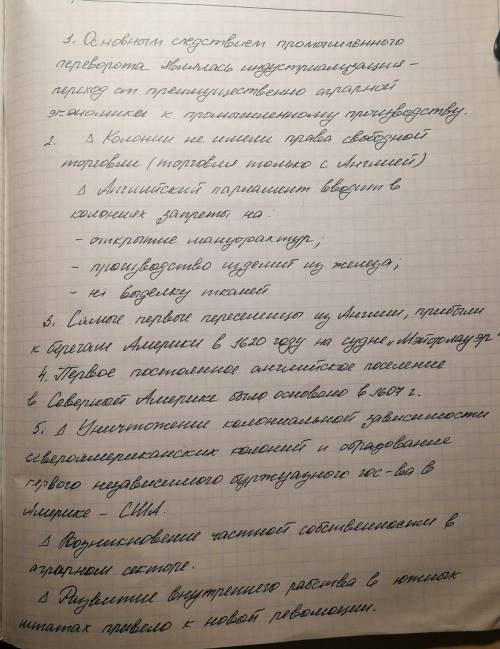 1. Основным следствием промышленного
переворота являлась индустриализация -
переход от преимущественно аграрной
экономики к промышленному производству.
2. Δ Колонии не имели права свободной
торговли (торговля только с Англией)
Δ Английский парламент вводит в
колониях запреты на:
- открытие мануфактур;
- производство изделий из железа;
- на выделку тканей
3. Самые первые переселенцы из Англии, прибыли
к берегам Америки в 1620 году на судне „Мэйфлауэр"
4. Первое постоянное английское поселение
в Северной Америке было основано в 1607 г.
5. Δ Уничтожение колониальной зависимости
североамериканских колоний и образование
первого независимого буржуазного гос-ва в
Америке - США.
Δ Возникновение частной собственности в
аграрном секторе.
Δ Развитие внутреннего рабства в южных
штатах привело к новой революции.